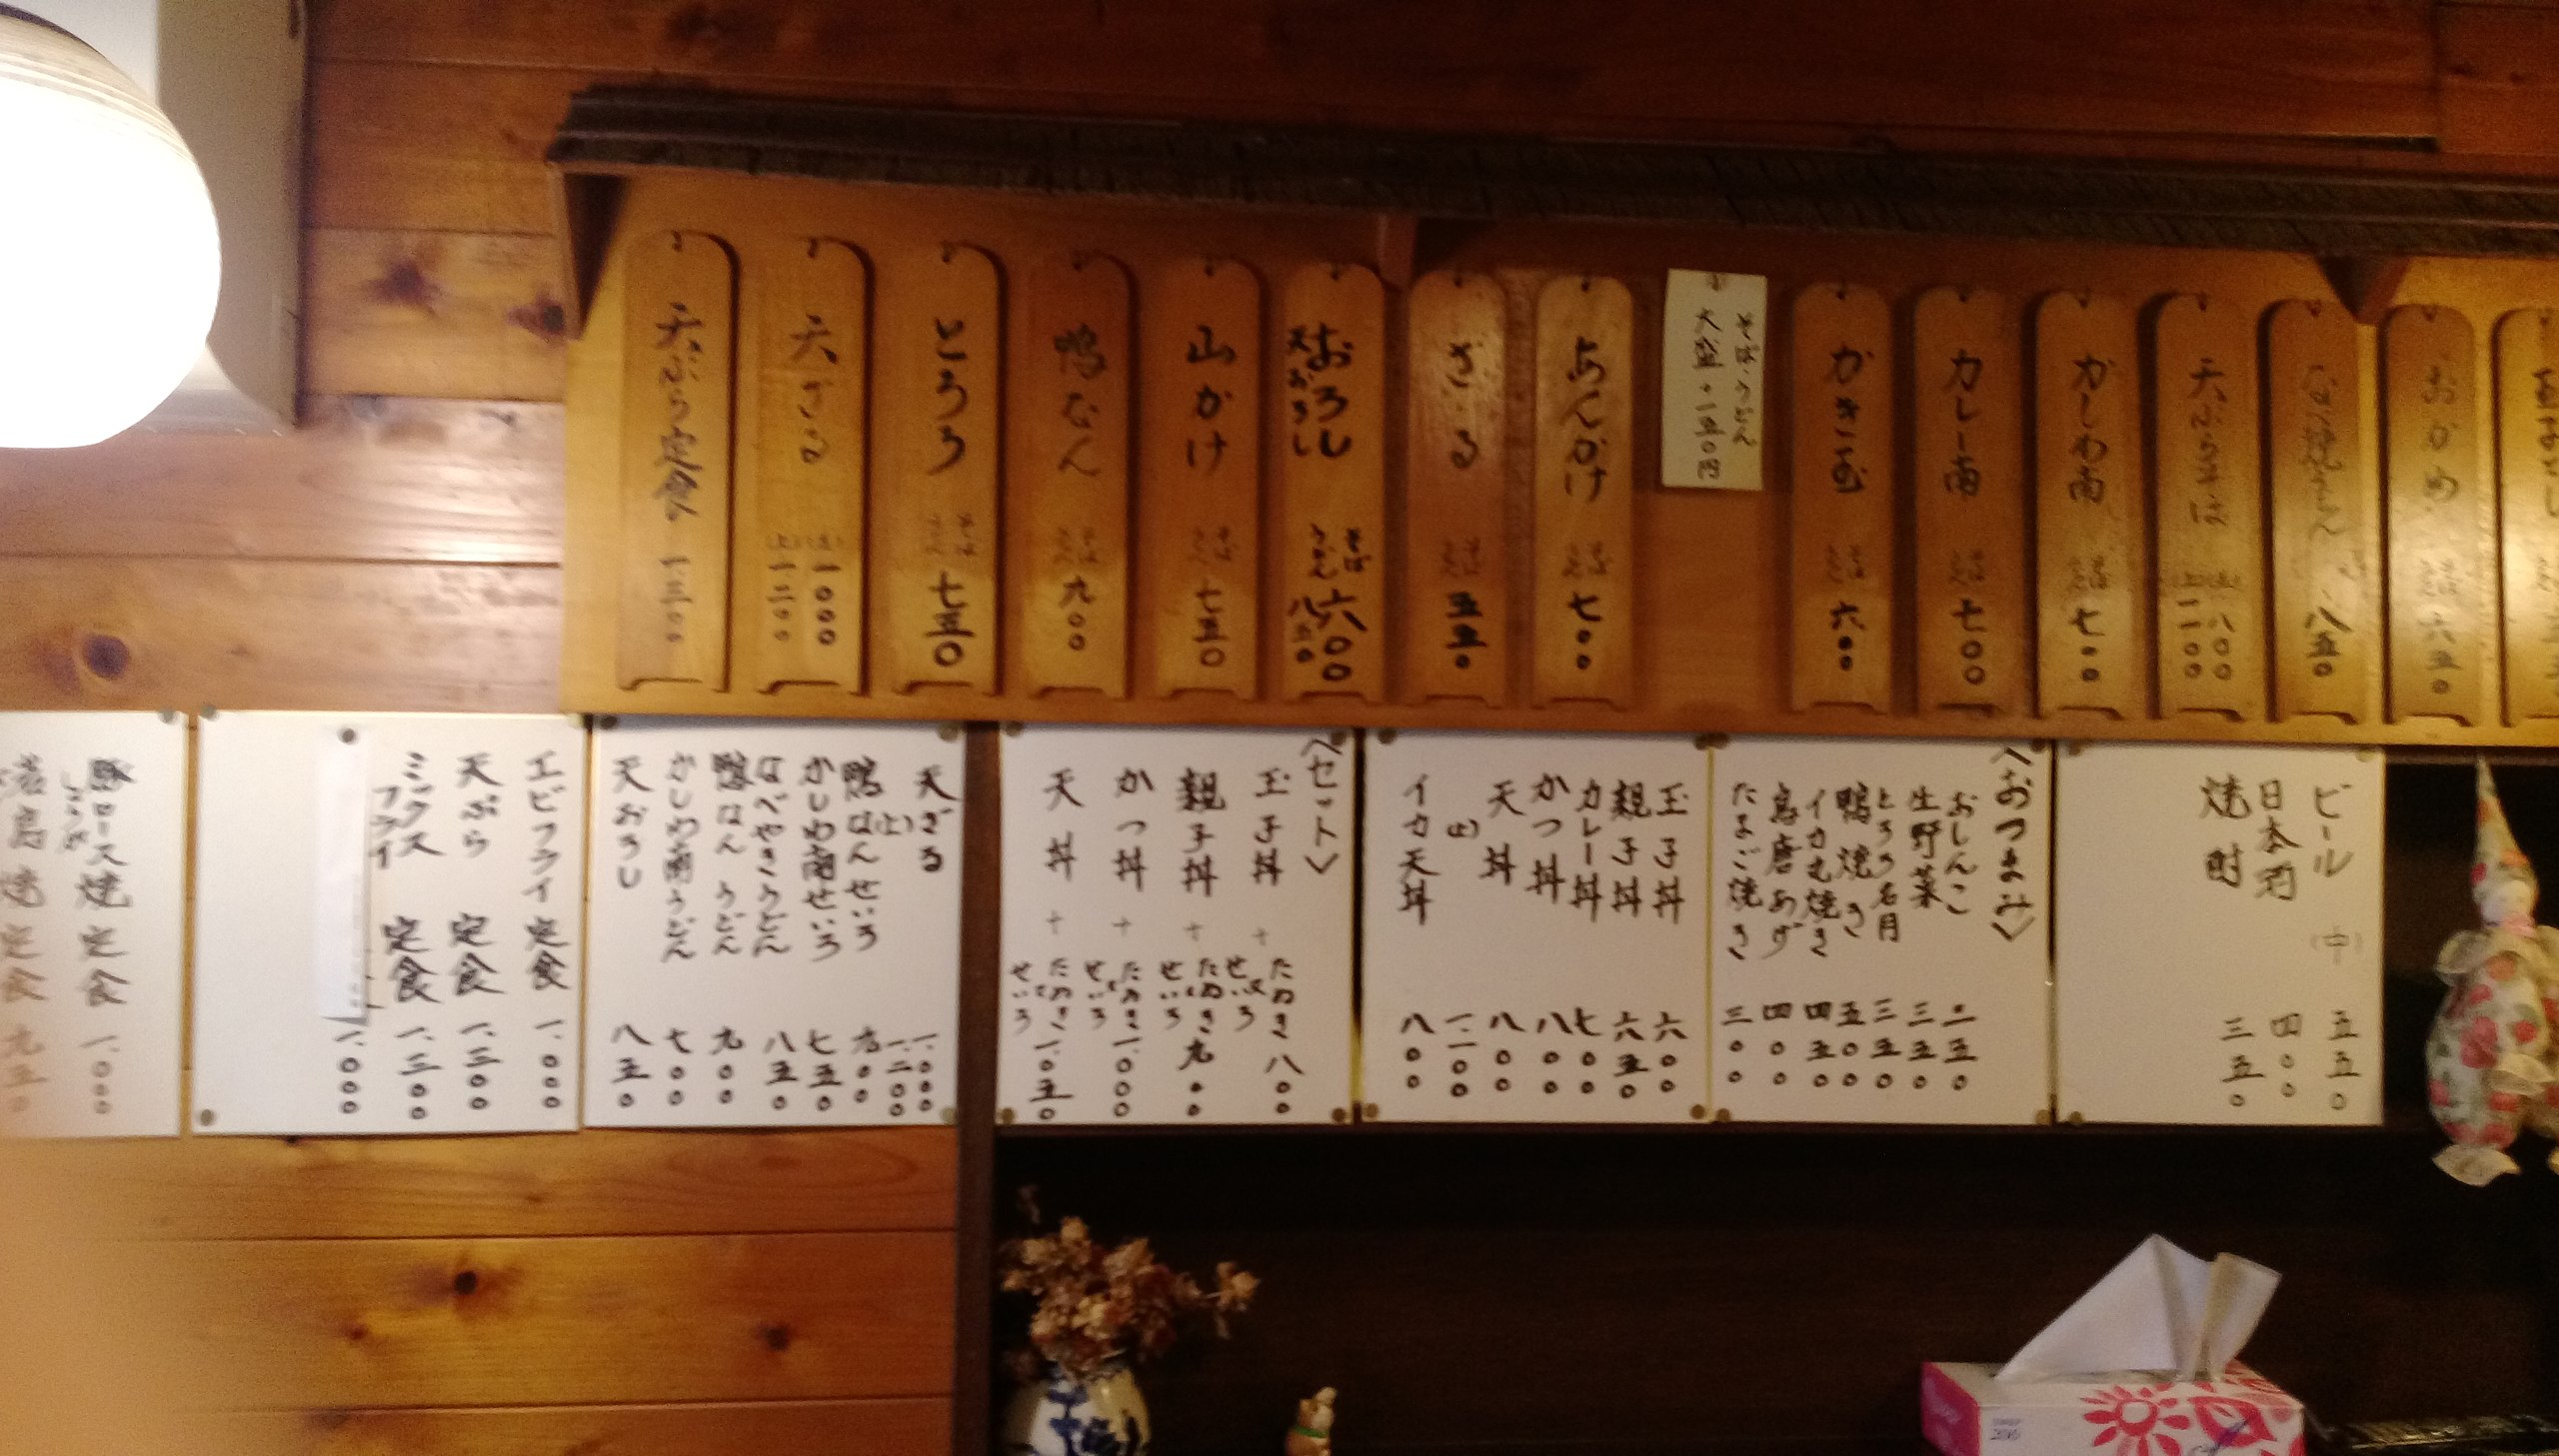 おかめ そば うどん 六五〇
なべ焼うどん 八五〇
天ぷらそば (並) 八〇〇
(上) 一一〇〇
かしわ南 そば うどん 七〇〇
カレー南 そば うどん 七〇〇
かき玉 そば うどん 六〇〇
そば・うどん
大盛+一五〇円
あんかけ そば うどん 七〇〇
ざる そば うどん 五五〇
おろし そば 六〇〇
天おろし うどん 八五〇
山かけ そば うどん 七五〇
鴨なん そば うどん 九〇〇
とろろ そば うどん 七五〇
天ざる (並) 一〇〇〇
(上) 一二〇〇
天ぷら定食 一三〇〇
ビール (中) 五五〇
日本酒 四〇〇
焼酎 三五〇
〈おつまみ〉
おしんこ 二五〇
生野菜 三五〇
とろろ名月 三五〇
鴨焼き 五五〇
イカ丸焼き 四五〇
鳥唐あげ 四〇〇
たまご焼き 三〇〇
玉子丼 六〇〇
親子丼 六五〇
カレー丼 七〇〇
かつ丼 八〇〇
天丼 八〇〇
(上) 一、一〇〇
イカ天丼 八〇〇
〈セット〉
玉子丼 + たぬき せいろ 八〇〇
親子丼 + たぬき せいろ 九〇〇
かつ丼 + たぬき せいろ 一、〇〇〇
天丼 + たぬき せいろ 一、〇五〇
天ざる 一、〇〇〇
(上) 一、二〇〇
鴨なんせいろ 九〇〇
かしわ南せいろ 七五〇
なべやきうどん 八五〇
鴨なんうどん 九〇〇
かしわ南うどん 七〇〇
天おろし 八五〇
エビフライ 定食 一、〇〇〇
天ぷら 定食 一、三〇〇
ミックスフライ 定食 一、三〇〇
一、〇〇〇
豚ロース しょうが 焼定食 一、〇〇〇
若鳥焼定食 九五〇